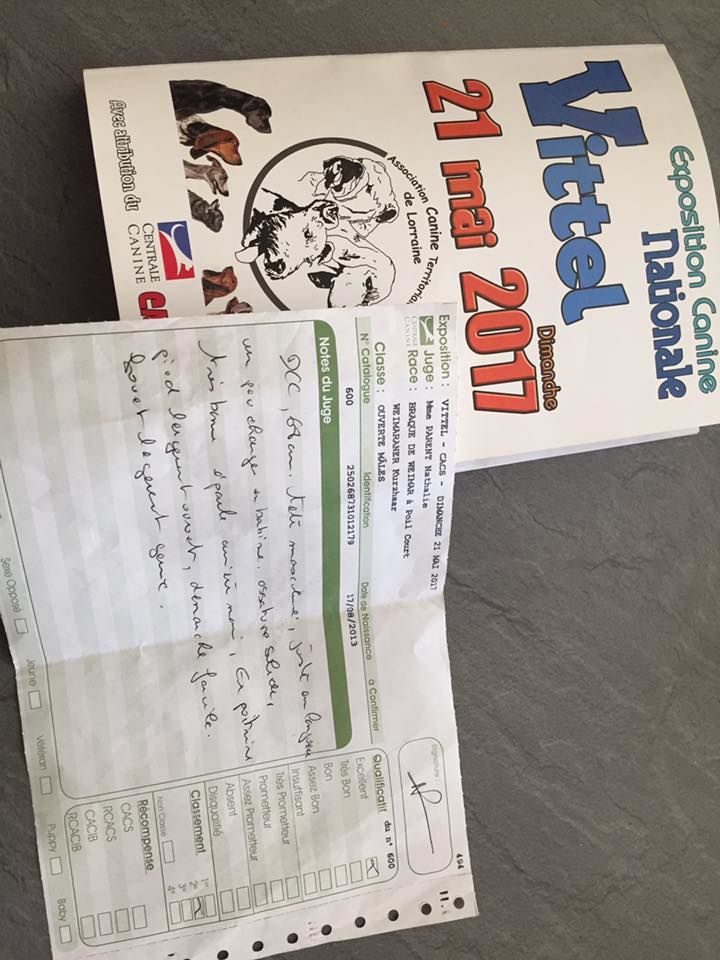 Exposition Canine
Nationale
Vittel
Dimanche
21 mai 2017
Association Canine Territoriale
de Lorraine
Avec attribution du
CENTRALE
CANINE
Exposition : VITTEL - CACS - DIMANCHE 21 MAI 2017
Juge : Mme PARENT Nathalie
CENTRALE
CANINE
Race : BRAQUE DE WEIMAR à Poil Court
WEIMARANER Kurzhaar
Classe : OUVERTE MÂLES
N° Catalogue Identification Date de Naissance à Confirmer
600 250268731012179 17/08/2013
Notes du Juge
DCC, 68 cm. tête masculine, juste en longueur
un peu chargé en babine, ossature solide,
très bonne épaule
pied légèrement ouvert, démarche facile.
fouet légèrement
Sexe Opposé
Jeune
Vétéran
Puppy
Baby
494
signature :
Qualificatif du n° 600
Excellent
Très Bon
Bon
Assez Bon
Insuffisant
Très Prometteur
Prometteur
Assez Prometteur
Absent
Disqualifié
Classement
1er
2e
3e
4e
Non Classé
Récompense
CACS
RCACS
CACIB
RCACIB